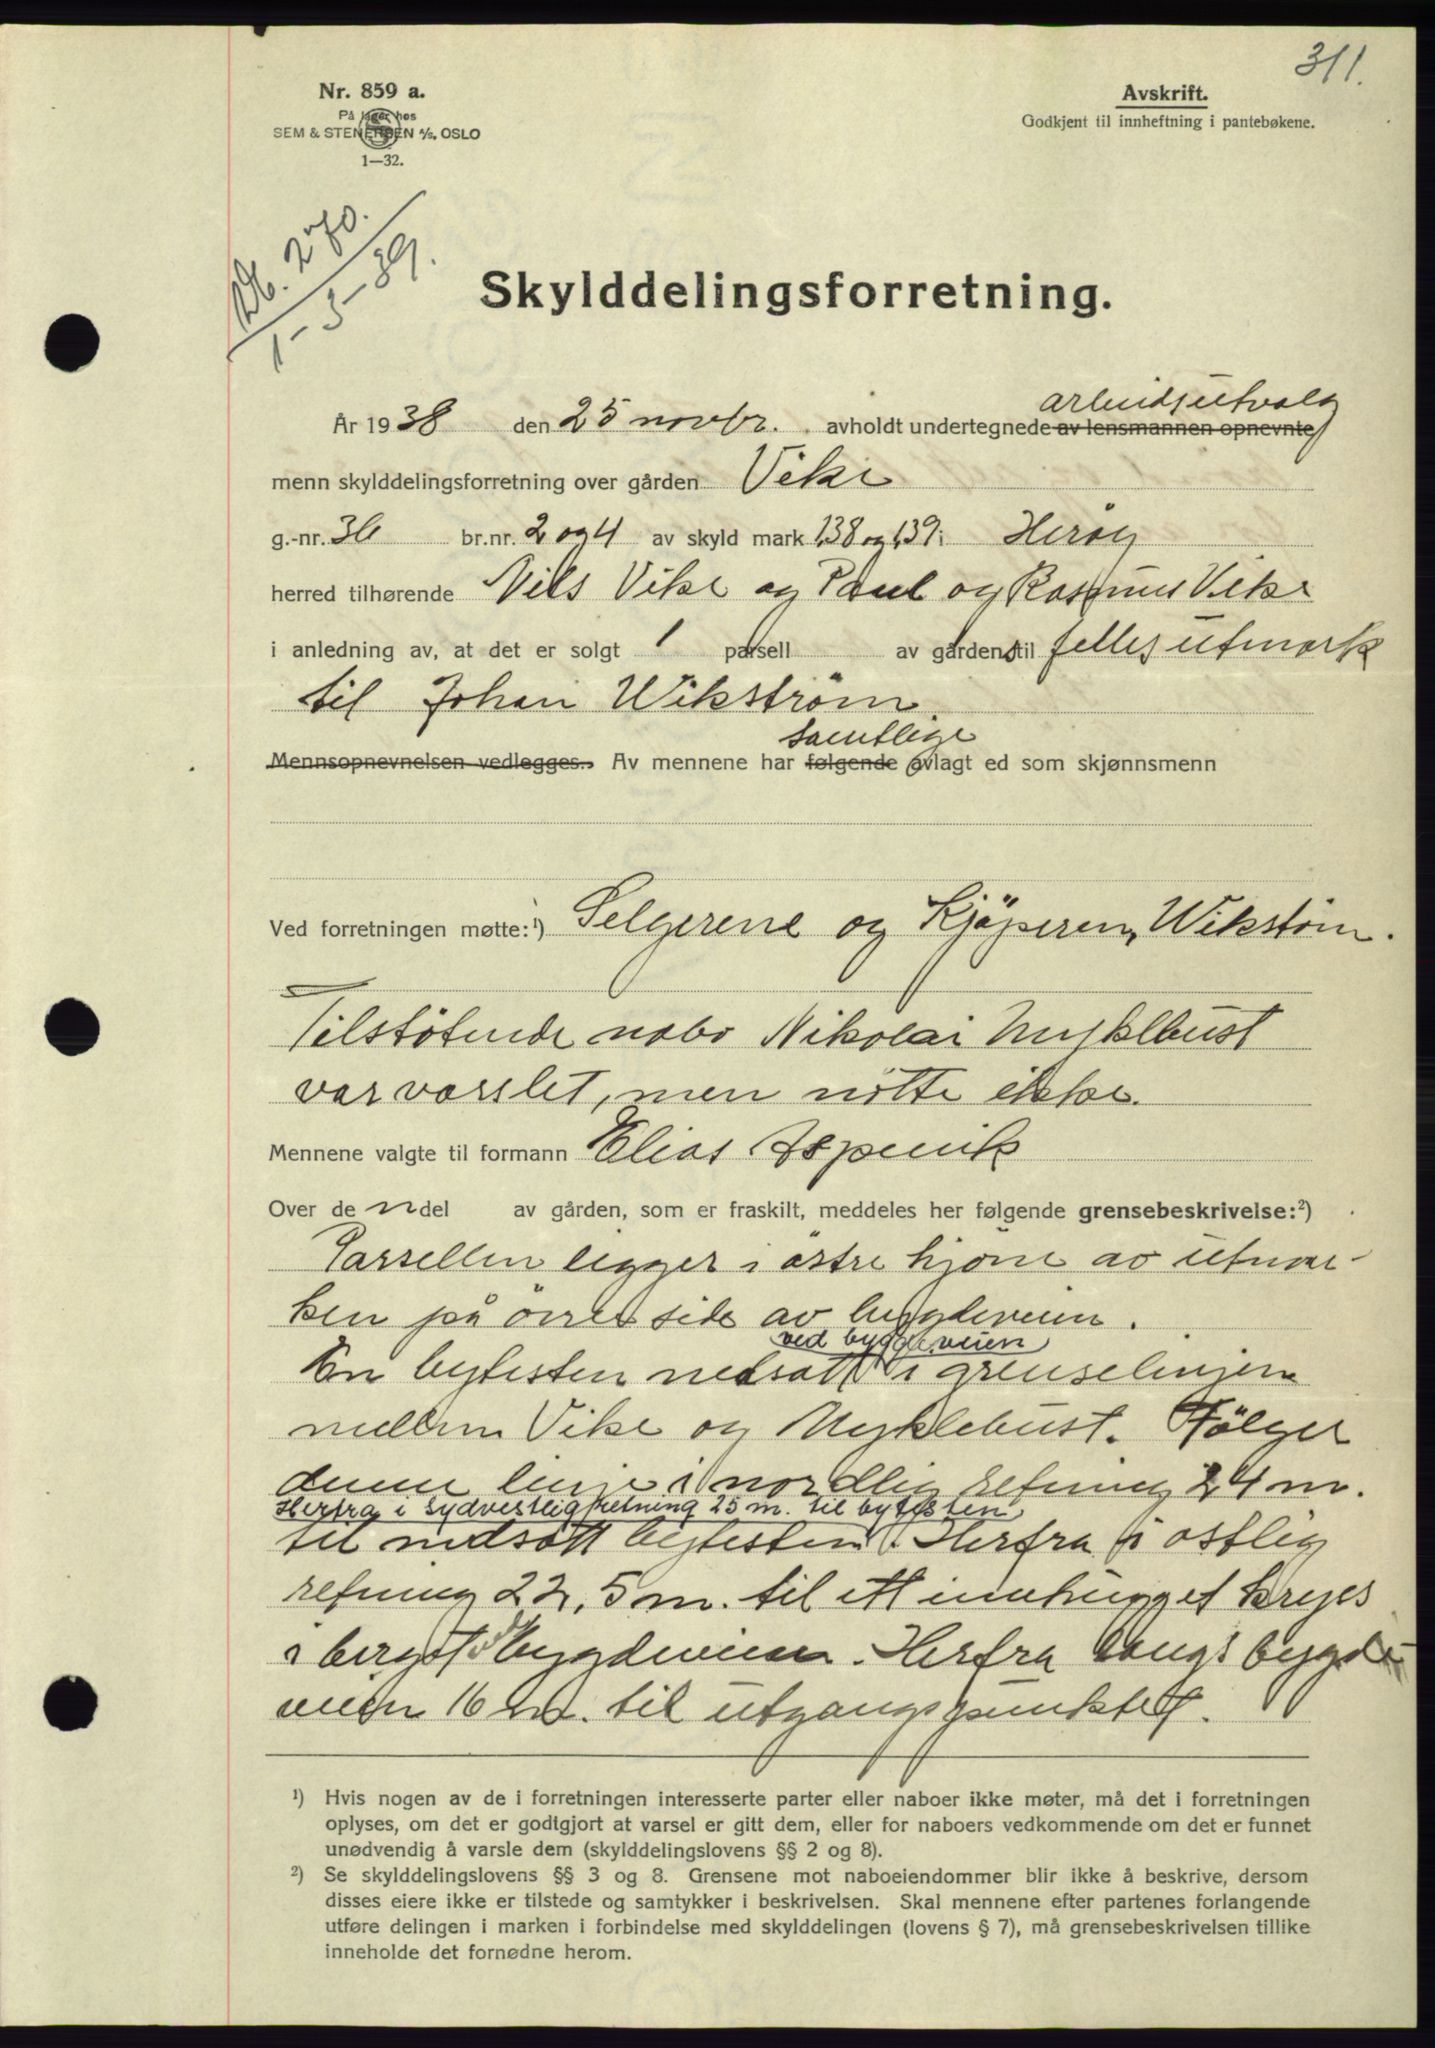 311.
Nr. 859 a.
På lager hos
SEM & STENERSEN A/S, OSLO
1—32.
Avskrift.
Godkjent til innheftning i pantebøkene.
Db. 270.
1-3-39.
Skylddelingsforretning.
arbeidsutvalg
År 1938 den 25 novbr. avholdt undertegnede av lensmannen opnevnte
menn skylddelingsforretning over gården Vike
g.-nr. 36 br.nr. 2 og 4 av skyld mark 1,38 og 1,39 i Herøy
herred tilhørende Nils Vike og Paul og Rasmus Vike
i anledning av, at det er solgt 1 parsell av gårdens til felles utmark
til Johan Wikström
samtlige
Mennsopnevnelsen vedlegges. Av mennene har følgende avlagt ed som skjønnsmenn
Ved forretningen møtte:¹) Selgerene og Kjöperen, Wikstöm.
Tilstötende nabo Nikolai Myklbust
var varslet, men nötte ikke.
Mennene valgte til formann Elias Aspevik
Over den del av gården, som er fraskilt, meddeles her følgende grensebeskrivelse:²)
Parsellen ligger i östre hjöne av utmar-
ken på övre side av bygdeveien.
ved bygdeveien
En bytesten nedsatt i grenselinjen
mellem Vike og Myklebust. Fölger
denne linje i nordlig retning 24 m.
Herfra i sydvestlig retning 25 m. til bytesten
til nedsatt bytesten. Herfra i ostlig
retning 22,5 m. til ett innhugget kryss
i berget ved bygdeveien. Herfra langs bygde-
veien 16 m. til utgangspunktet.
¹) Hvis nogen av de i forretningen interesserte parter eller naboer ikke møter, må det i forretningen
oplyses, om det er godtgjort at varsel er gitt dem, eller for naboers vedkommende om det er funnet
unødvendig å varsle dem (skylddelingslovens §§ 2 og 8).
²) Se skylddelingslovens §§ 3 og 8. Grensene mot naboeiendommer blir ikke å beskrive, dersom
disses eiere ikke er tilstede og samtykker i beskrivelsen. Skal mennene efter partenes forlangende
utføre delingen i marken i forbindelse med skylddelingen (lovens § 7), må grensebeskrivelsen tillike
inneholde det fornødne herom.